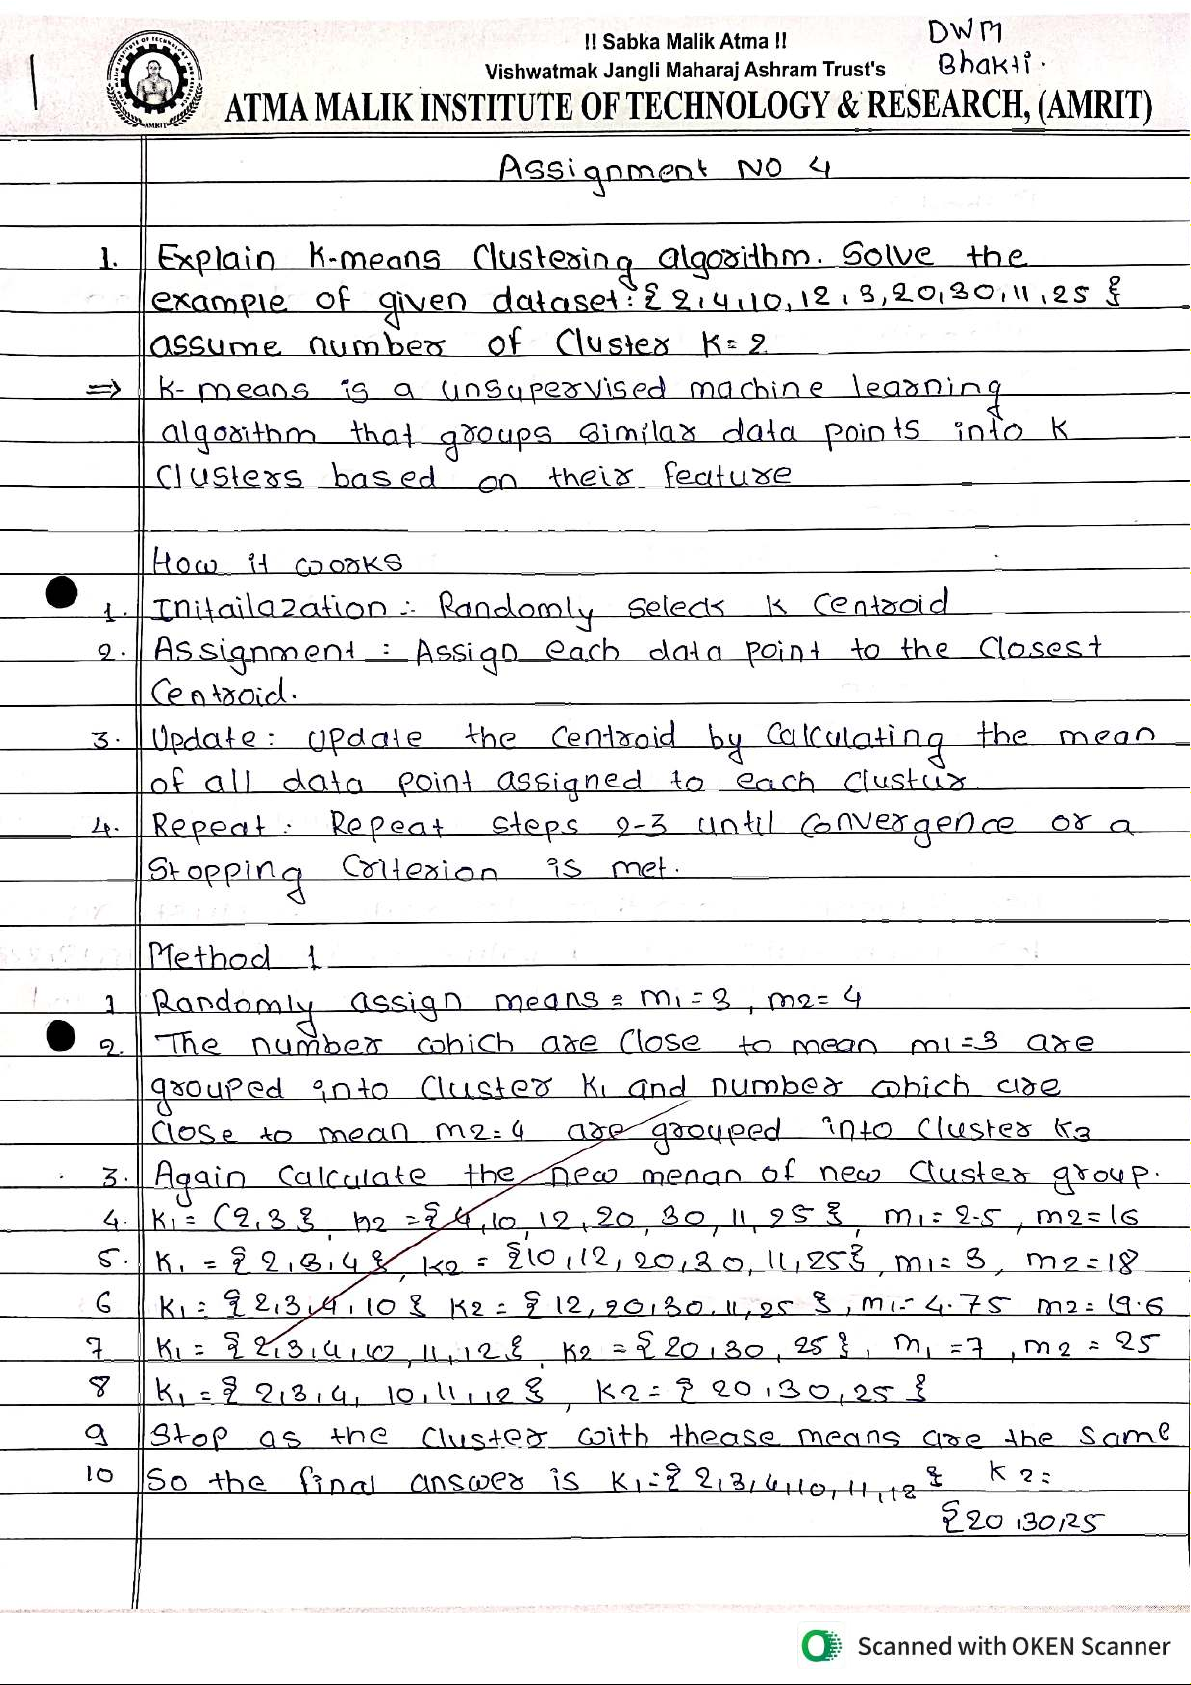 !! Sabka Malik Atma !!
DWM
Vishwatmak Jangli Maharaj Ashram Trust's
Bhakti.
ATMA MALIK INSTITUTE OF TECHNOLOGY & RESEARCH, (AMRIT)
Assignment NO 4
1. Explain K-means Clustering algorithm. Solve the
example of given dataset: { 2,4,10,12,3,20,30,11,25 }
assume number of Cluster K=2
⇒ K-means is a unsupervised machine learning
algorithm that groups similar data points into K
Clusters based on their feature
How it works
1. Initailazation :- Randomly selects K Centroid
2. Assignment : Assign each data point to the Closest
Centroid.
3. Update: Update the Centroid by Calculating the mean
of all data point assigned to each Clustur
4. Repeat: Repeat steps 2-3 until Convergence or a
Stopping Criterion is met.
Method 1
1 Randomly assign means = m1=3, m2=4
2. The number which are Close to mean m1=3 are
grouped into Cluster K1 and number which are
Close to mean m2=4 are grouped into Cluster K2
3. Again Calculate the new menan of new Cluster group.
4. K1 = (2,3}, K2 = {4,10,12,20,30,11,25}, m1=2.5, m2=16
5. K1 = {2,3,4}, K2 = {10,12,20,30,11,25}, m1=3, m2=18
6 K1 = {2,3,4,10} K2 = {12,20,30,11,25}, m1=4.75 m2=19.6
7 K1 = {2,3,4,10,11,12}, K2 = {20,30,25}, m1=7, m2=25
8 K1 = {2,3,4,10,11,12}, K2 = {20,30,25}
9 Stop as the Cluster with thease means are the same
10 So the final answer is K1={2,3,4,10,11,12} K2=
{20,30,25
Scanned with OKEN Scanner